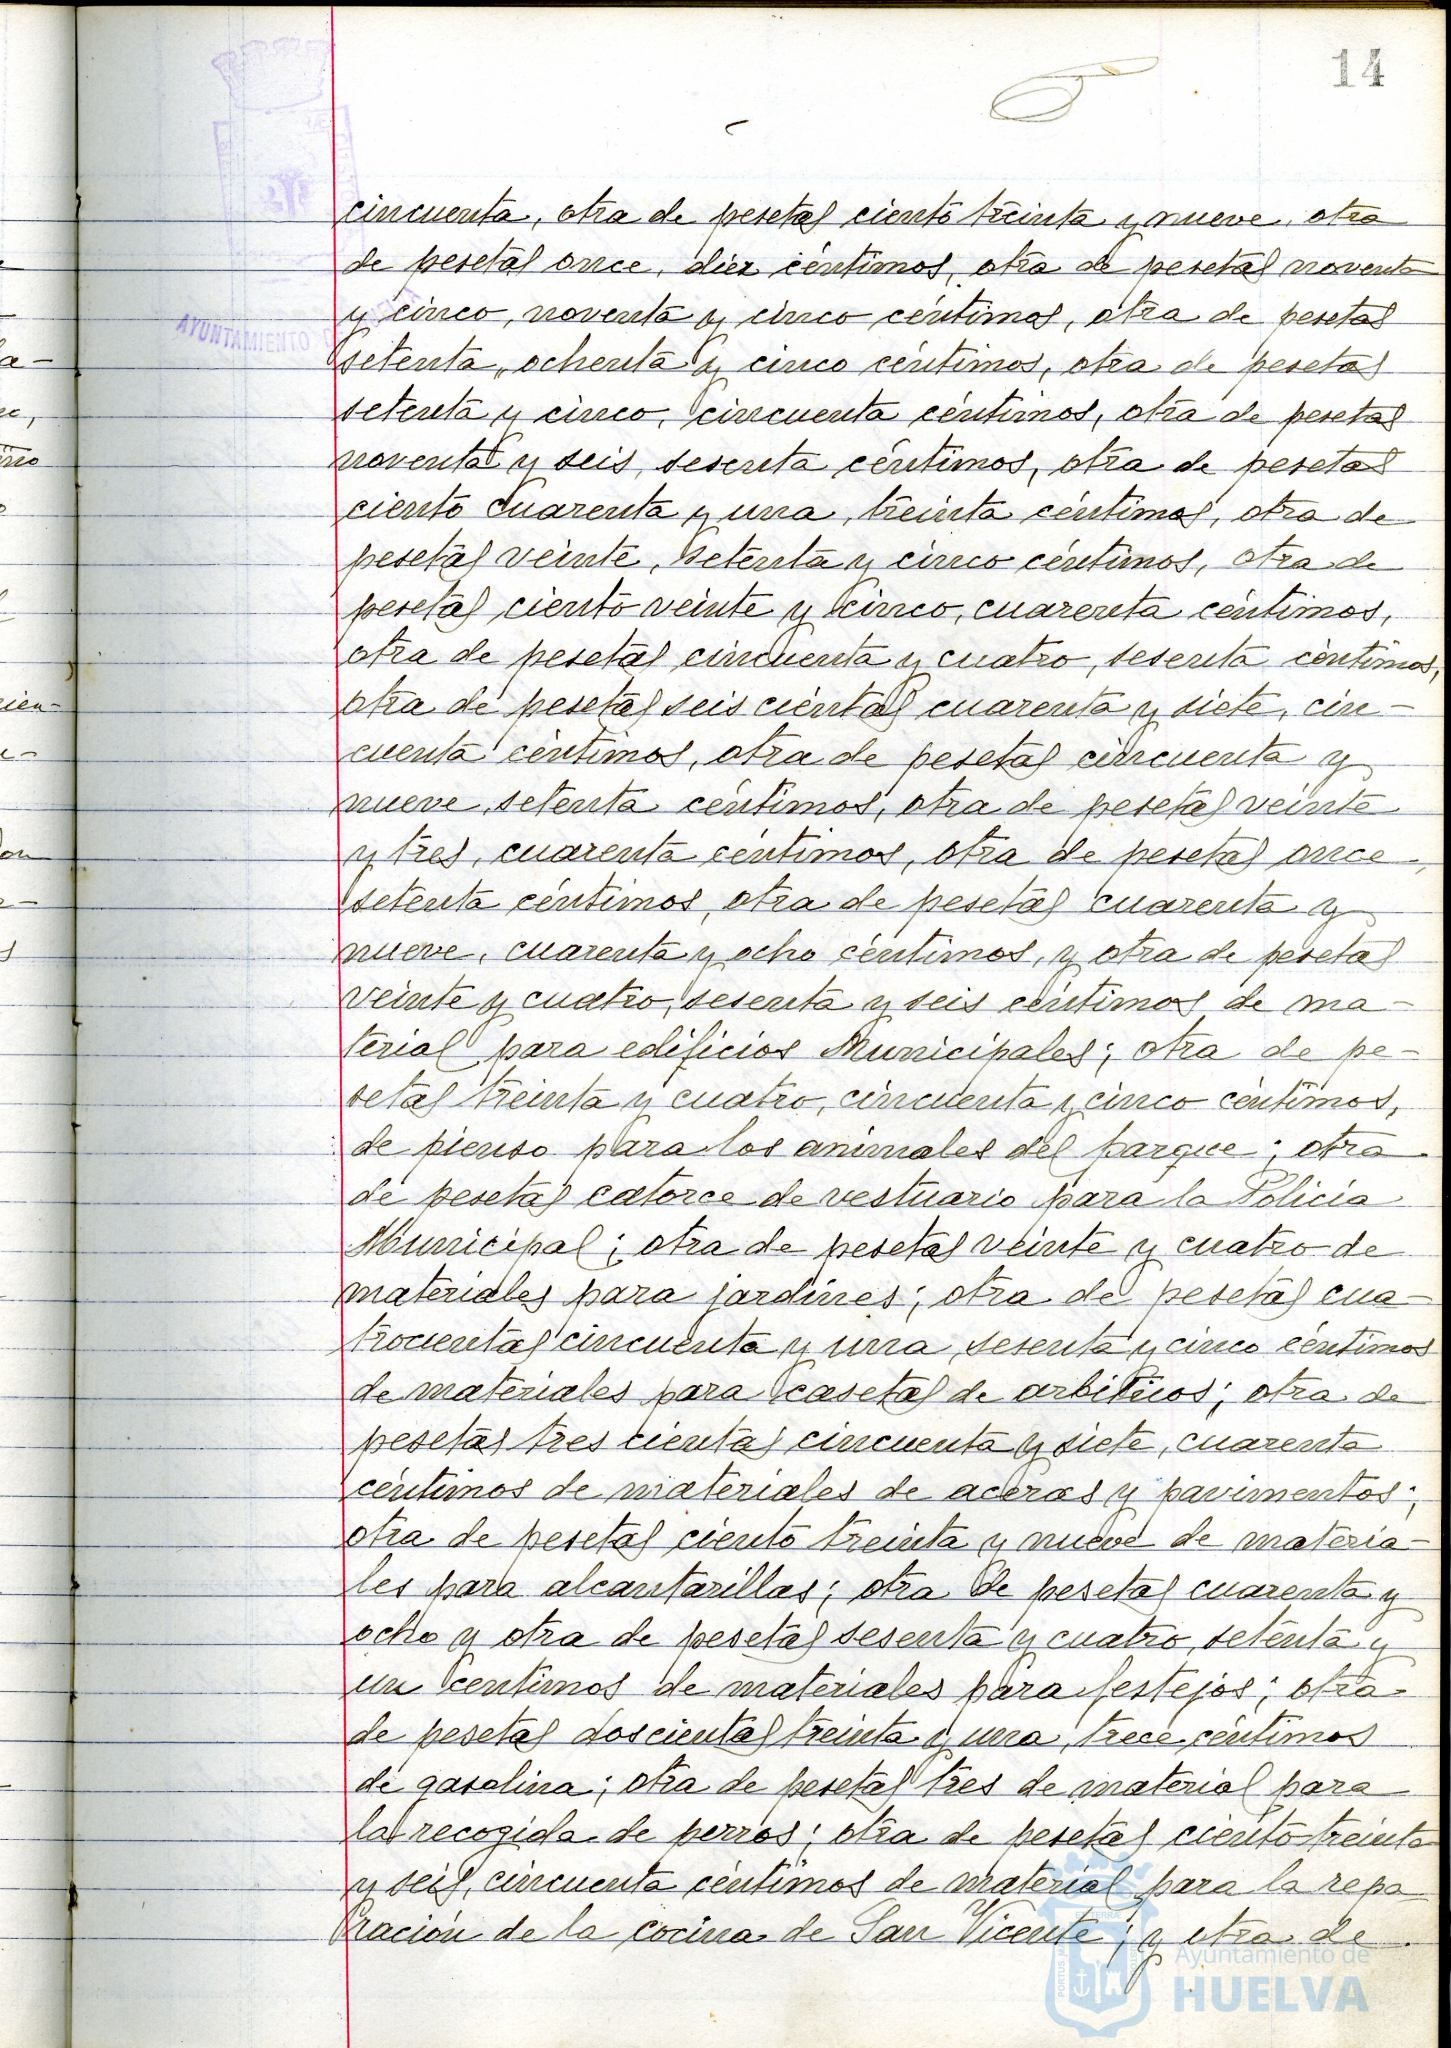 14
cincuenta, otra de pesetas ciento treinta y nueve, otra
de pesetas once, diez céntimos, otra de pesetas noventa
y cinco, noventa y cinco céntimos, otra de pesetas
setenta, ochenta y cinco céntimos, otra de pesetas
setenta y cinco, cincuenta céntimos, otra de pesetas
noventa y seis, sesenta céntimos, otra de pesetas
ciento cuarenta y una, treinta céntimos, otra de
pesetas veinte, setenta y cinco céntimos, otra de
pesetas ciento veinte y cinco, cuarenta céntimos,
otra de pesetas cincuenta y cuatro, sesenta céntimos,
otra de pesetas seiscientas cuarenta y siete, cin-
cuenta céntimos, otra de pesetas cincuenta y
nueve, setenta céntimos, otra de pesetas veinte
y tres, cuarenta céntimos, otra de pesetas once,
setenta céntimos, otra de pesetas cuarenta y
nueve, cuarenta y ocho céntimos, y otra de pesetas
veinte y cuatro, sesenta y seis céntimos de ma-
terial para edificios Municipales; otra de pe-
setas treinta y cuatro, cincuenta y cinco céntimos,
de pienso para los animales del parque; otra
de pesetas catorce de vestuario para la Policía
Municipal; otra de pesetas veinte y cuatro de
materiales para jardines; otra de pesetas cua-
trocientas cincuenta y una, sesenta y cinco céntimos
de materiales para casetas de arbitrios; otra de
pesetas tres cientas cincuenta y siete, cuarenta
céntimos de materiales de aceras y pavimentos;
otra de pesetas ciento treinta y nueve de materia-
les para alcantarillas; otra de pesetas cuarenta y
ocho y otra de pesetas sesenta y cuatro, setenta y
un centimos de materiales para festejos; otra
de pesetas doscientas treinta y una, trece céntimos
de gasolina; otra de pesetas tres de material para
la recogida de perros; otra de pesetas ciento treinta
y seis, cincuenta céntimos de material para la repa
ración de la cocina de San Vicente; y otra de
AYUNTAMIENTO
Ayuntamiento de
HUELVA